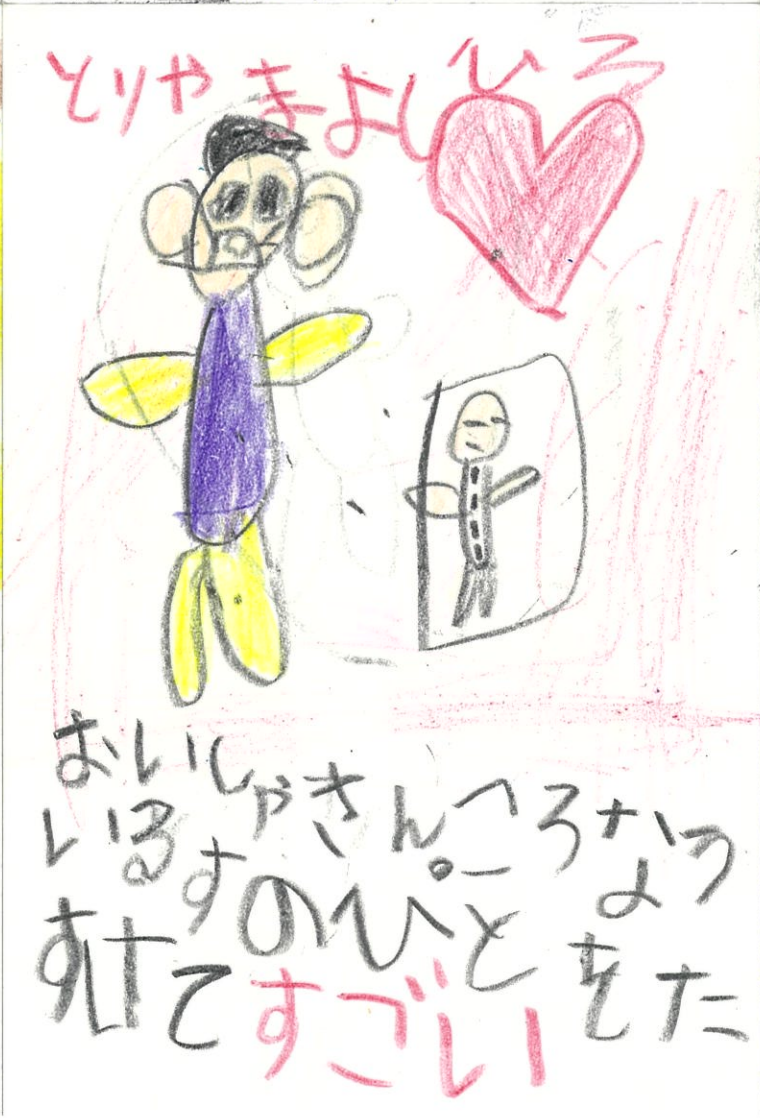 とりやまよしひろ
おいしゃさん。ころなう
いるすのひとをた
すけてすごい